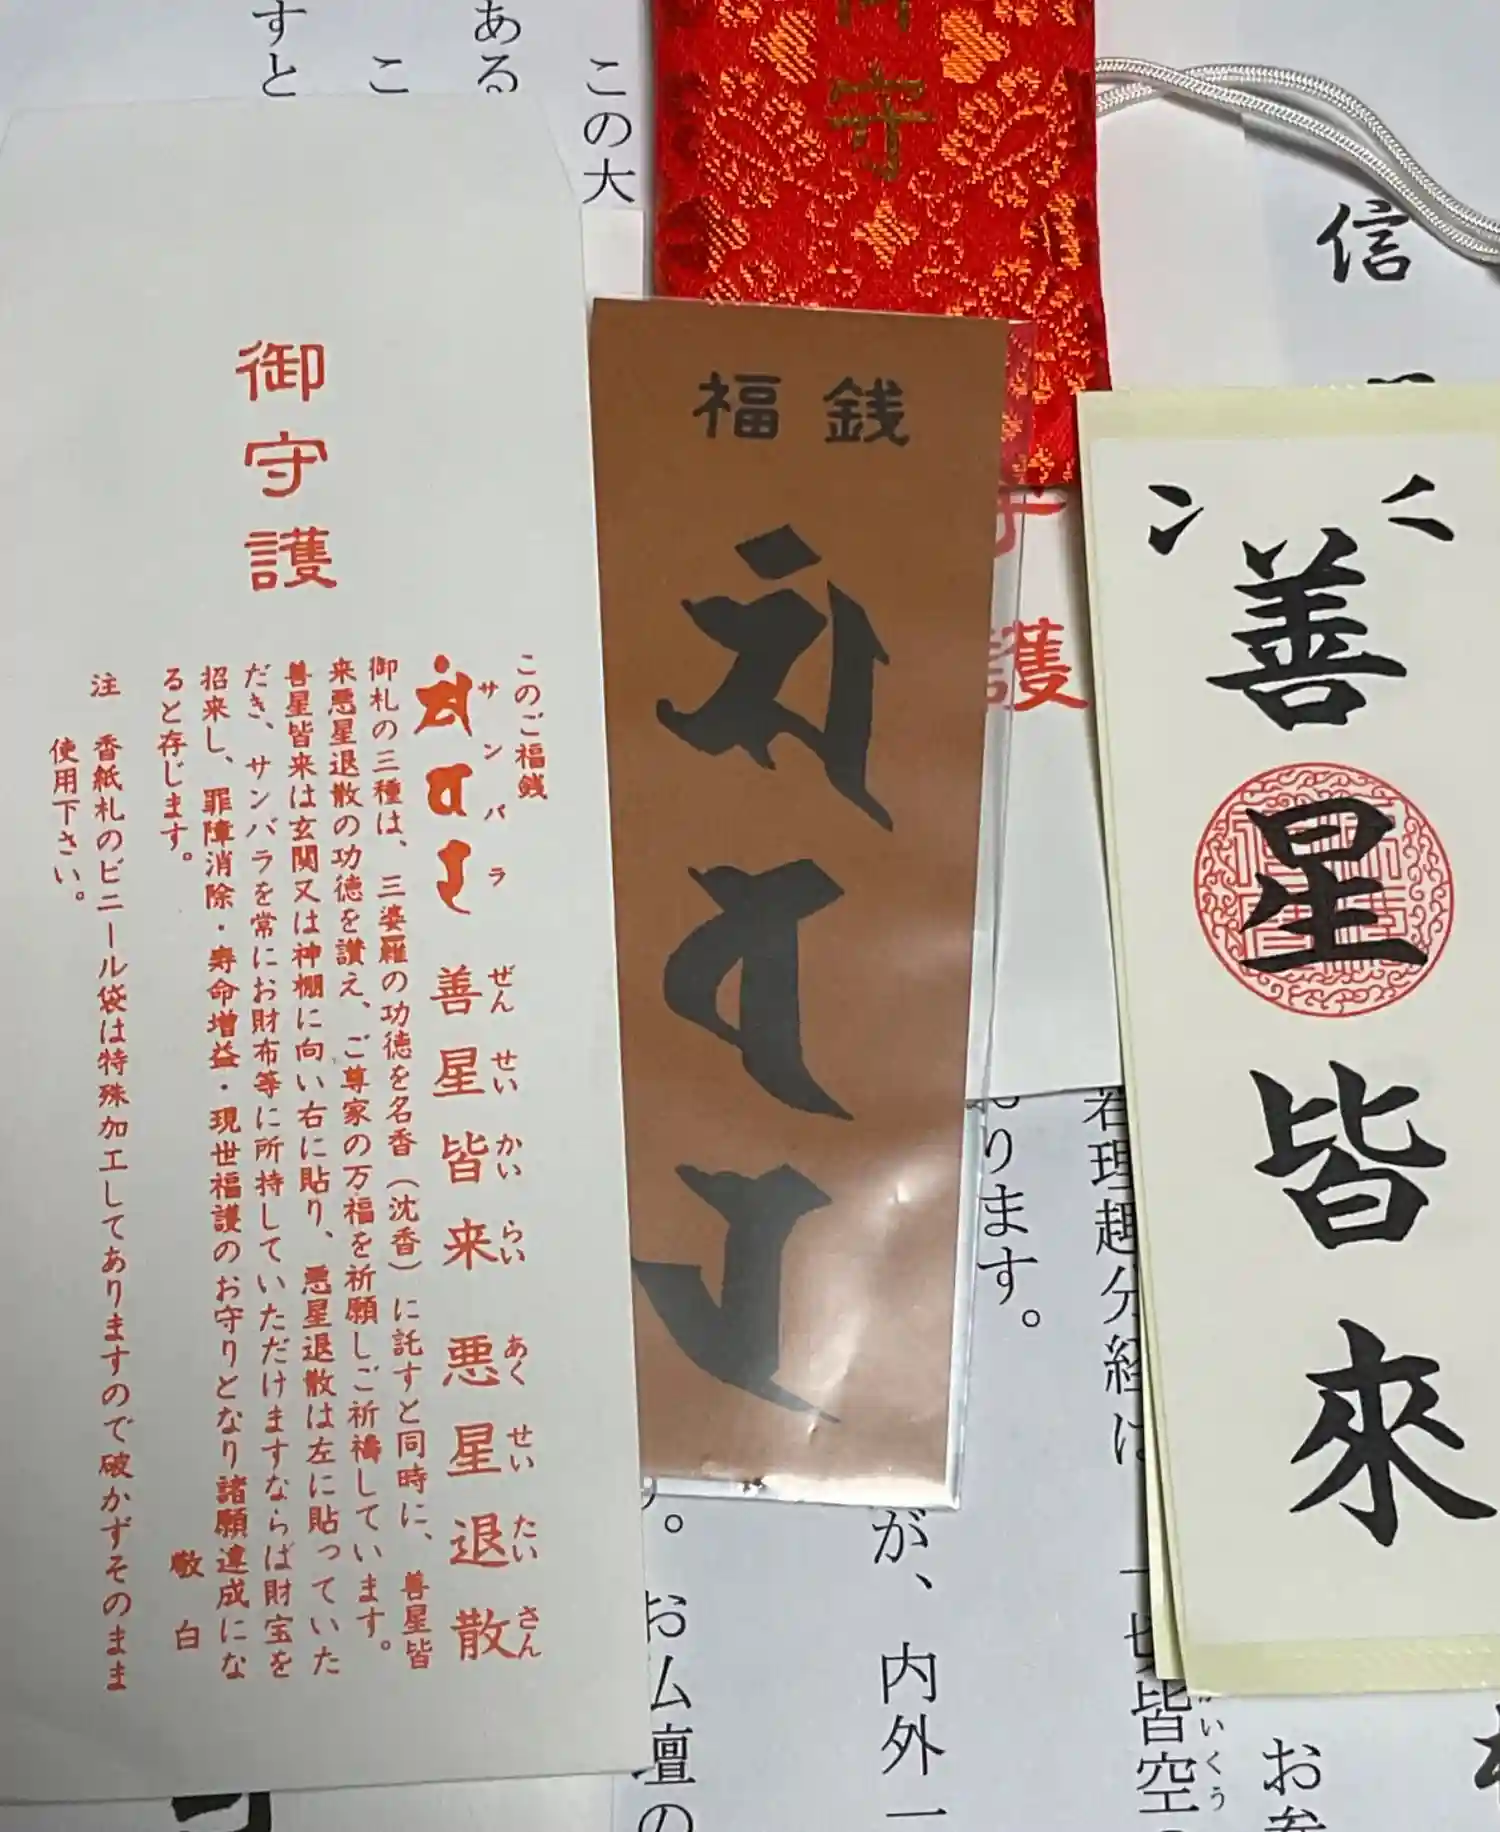 御守護
このご福銭
サンバラ
善星皆来 悪星退散
ぜんせいかいらい あくせいたいさん
御札の三種は、三婆羅の功徳を名香(沈香)に託すと同時に、善星皆
来悪星退散の功徳を讃え、ご尊家の万福を祈願しご祈禱しています。
善星皆来は玄関又は神棚に向い右に貼り、悪星退散は左に貼っていた
だき、サンバラを常にお財布等に所持していただけますならば財宝を
招来し、罪障消除・寿命増益・現世福護のお守りとなり諸願達成にな
ると存じます。
敬白
注 香紙札のビニール袋は特殊加工してありますので破かずそのまま
使用下さい。
福銭
守
護
善星皆來
信
この大
こ
ある
すと
ります。
若理趣分経は
一切皆空
いくう
が、内外一
。お仏壇の
お参